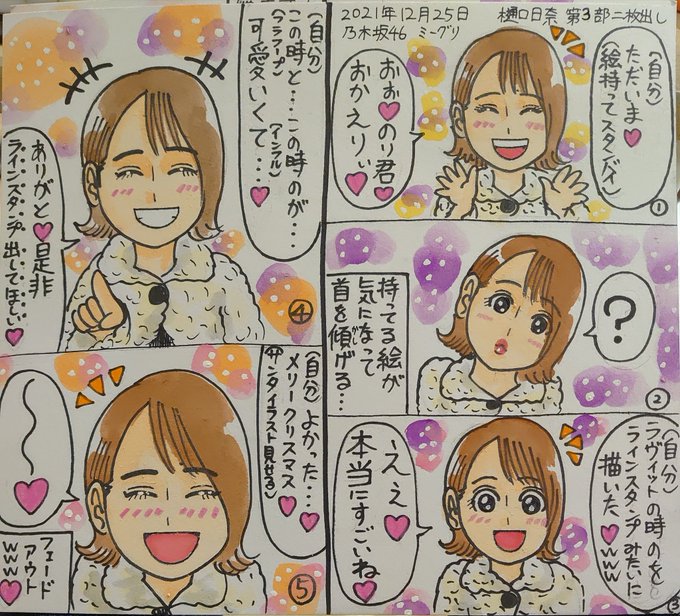 2021年12月25日 樋口日奈 第3部二枚出し
乃木坂46 ミーグリ
(自分)
ただいま♥
絵持ってスタンバイ
おぉ♥のり君♥
おかえりぃ
①
?
持ってる絵が
気になって
首を傾げる…
②
(自分)
ラヴィットの時のを
ラインスタンプみたいに
描いた♥www
ええ♥
本当にすごいね♥
(自分)
この時と…この時のが…
可愛いくて…♥
ありがと♥是非
ラインスタンプ出してほしい♥
④
(自分)よかった…
メリークリスマス♥
(サンタイラスト見せる)
フェード
アウト
www♥
⑤